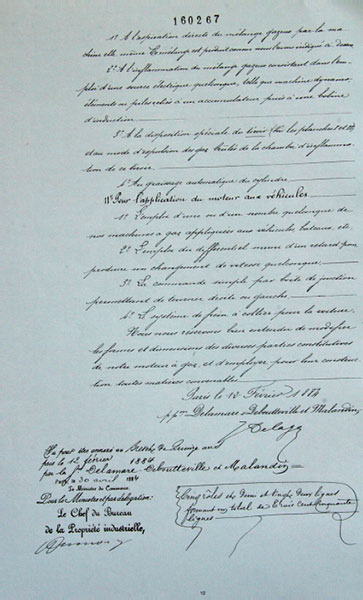 160267
1° A l'aspiration directe du mélange gazeux par la ma-
chine elle même. Ce mélange est produit comme nous l'avons indiqué
2° A l'inflammation du mélange gazeux consistant dans l'em-
ploi d'une source électrique quelconque, telle que machine dynamo,
éléments ou piles reliés à un accumulateur puis à une bobine
d'induction
3° A la disposition spéciale du tiroir (
et au mode d'expulsion des gaz brûlés de la chambre d'inflamma-
tion de ce tiroir
4° Au graissage automatique du cylindre
II° Pour l'application du moteur aux véhicules
1° L'emploi d'une ou d'un nombre quelconque de
nos machines à gaz appliquées aux véhicules, bateaux, etc.
2° L'emploi du différentiel et même d'un retard pour
produire un changement de vitesse quelconque.
3° La commande simple par boîte de jonction
permettant de tourner droite ou gauche.
4° Le système de frein à collier pour la voiture.
Nous nous réservons bien entendu de modifier
les formes et dimensions des diverses parties constitutives
de notre moteur à gaz, et d'employer pour leur construc-
tion toutes matières convenables
Paris le 12 Février 1884
ppon Delamare-Deboutteville et Malandin
Vu pour être annexé au Brevet de quinze ans
pris le 12 février 1884
par les Srs Delamare Deboutteville et Malandin
Paris, le 30 avril 1884
Le Ministre du Commerce
Pour le Ministre et par délégation:
Le Chef du Bureau
de la Propriété industrielle,
lignes
12